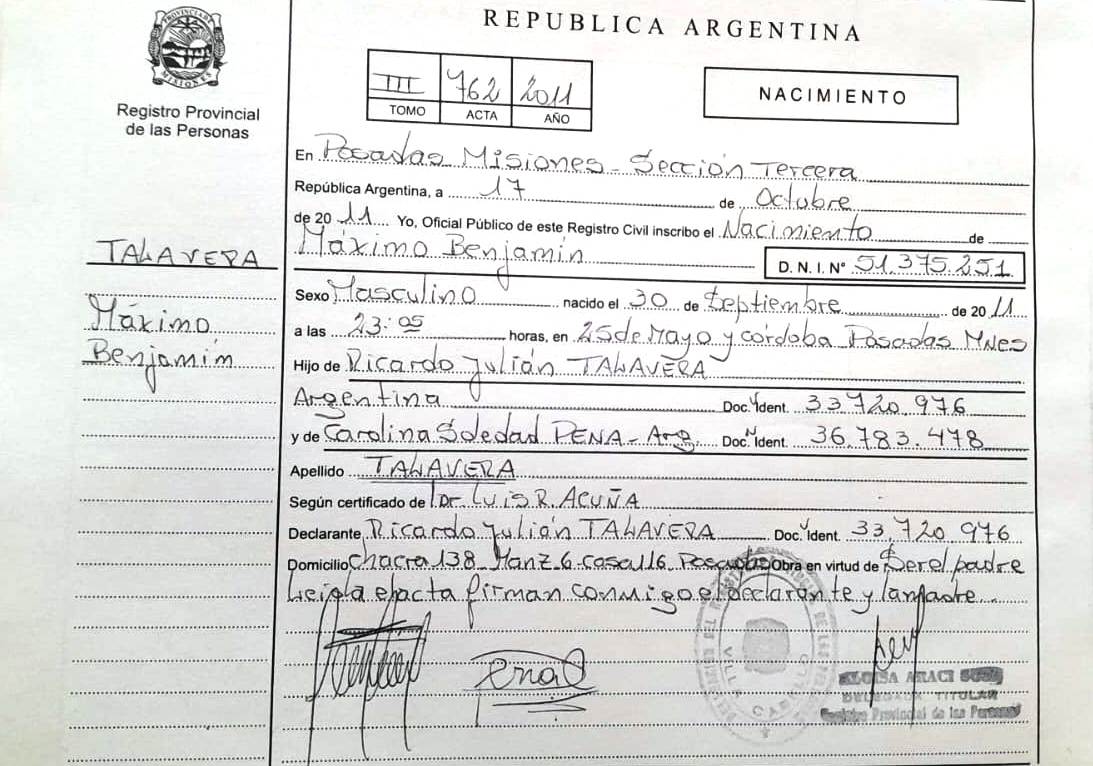 PROVINCIA DE MISIONES
Registro Provincial
de las Personas
TALAVERA
Máximo
Benjamín
REPUBLICA ARGENTINA
III 762 2011
TOMO ACTA AÑO
NACIMIENTO
En Posadas Misiones - Sección Tercera
República Argentina, a 17 de Octubre
de 20 11 Yo, Oficial Público de este Registro Civil inscribo el Nacimiento de
Máximo Benjamín D. N. I. Nº 51.375.251
Sexo Masculino nacido el 30 de Septiembre de 20 11
a las 23:05 horas, en 25 de Mayo y córdoba Posadas Mnes
Hijo de Ricardo Julián TALAVERA
Argentina Doc. Ident. 33.720.976
y de Carolina Soledad PENA - Arg. Doc. Ident. 36.783.478
Apellido TALAVERA
Según certificado de Dr. Luis R. ACUÑA
Declarante Ricardo Julián TALAVERA Doc. Ident. 33.720.976
Domicilio chacra 138 Manz 6 casa 116 Posadas Obra en virtud de Ser el padre
Leída el acta firman conmigo el declarante y la madre
VILLA CABELLO
ARACI
DELEGADA TITULAR
Registro Provincial de las Personas